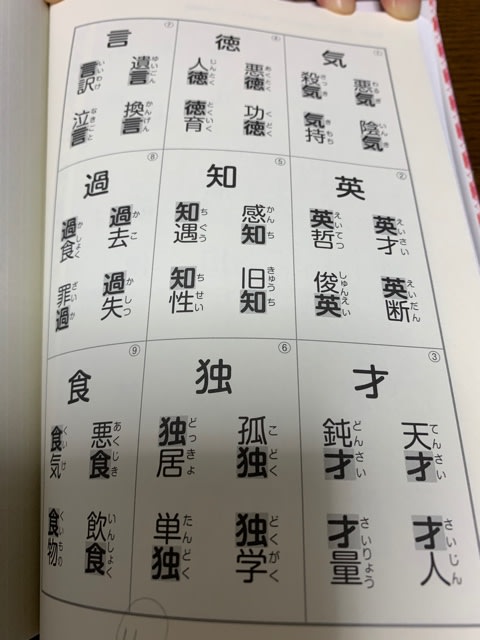 ①
気
悪気 わるぎ
殺気 さっき
陰気 いんき
気持 きもち
②
英
英才 えいさい
英哲 えいてつ
英断 えいだん
俊英 しゅんえい
③
才
天才 てんさい
鈍才 どんさい
才人 さいじん
才量 さいりょう
④
徳
悪徳 あくとく
人徳 じんとく
功徳 くどく
徳育 とくいく
⑤
知
感知 かんち
知遇 ちぐう
旧知 きゅうち
知性 ちせい
⑥
独
孤独 こどく
独居 どっきょ
独学 どくがく
単独 たんどく
⑦
言
遺言 ゆいごん
言訳 いいわけ
換言 かんげん
泣言 なきごと
⑧
過
過去 かこ
過食 かしょく
過失 かしつ
罪過 ざいか
⑨
食
悪食 あくじき
食気 くいけ
飲食 いんしょく
食物 くいもの